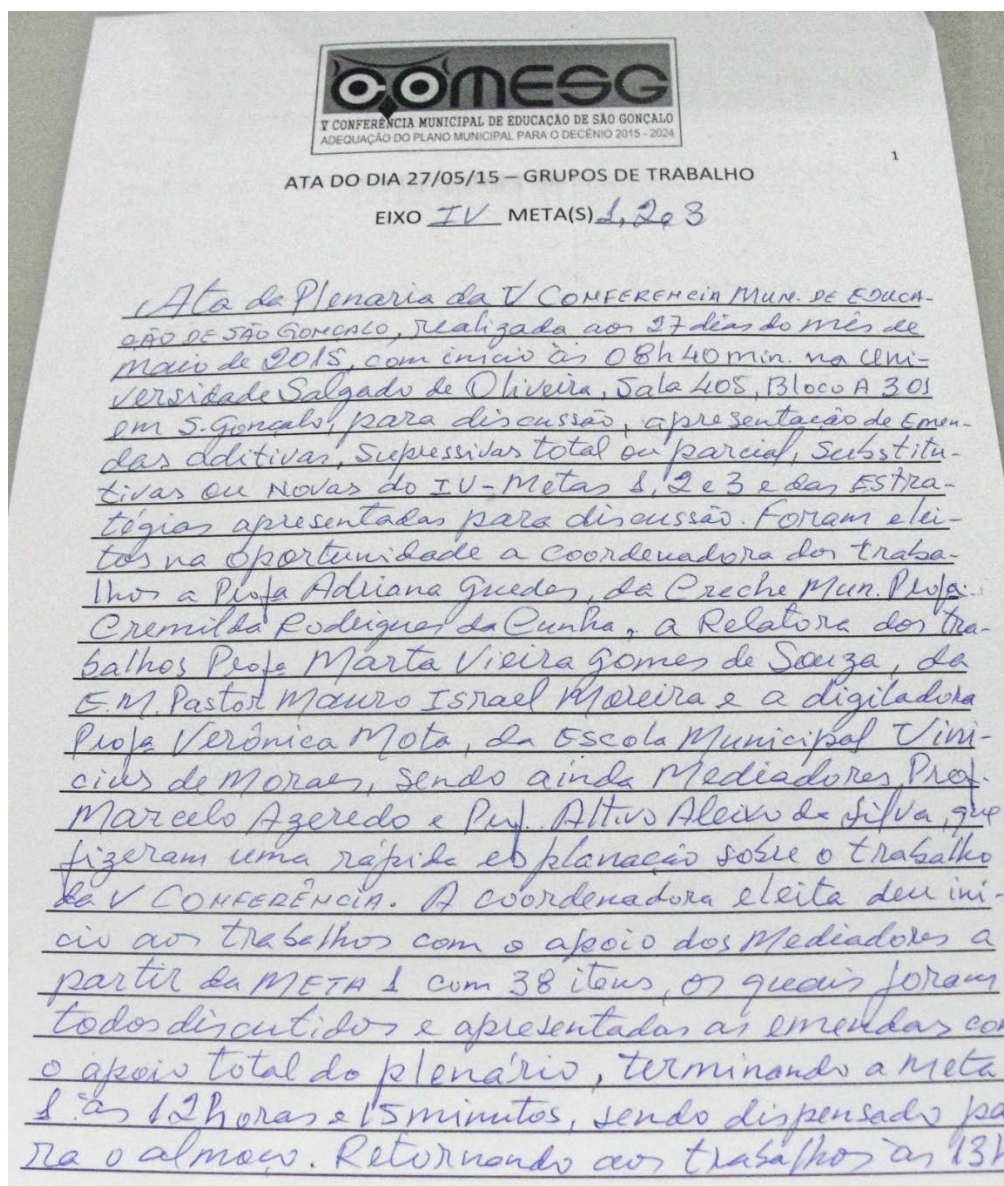 COMESG
V CONFERÊNCIA MUNICIPAL DE EDUCAÇÃO DE SÃO GONÇALO
ADEQUAÇÃO DO PLANO MUNICIPAL PARA O DECÊNIO 2015 - 2024
1
ATA DO DIA 27/05/15 – GRUPOS DE TRABALHO
EIXO IV META(S) 1, 2 e 3
Ata da Plenaria da V CONFERENCIA MUN. DE EDUCA-
ÇÃO DE SÃO GONÇALO, realizada aos 27 dias do mês de
maio de 2015, com início às 08h40min. na Uni-
versidade Salgado de Oliveira, Sala 405, Bloco A 301
em S. Gonçalo, para discussão, apresentação de Emen-
das aditivas, Supressivas total ou parcial, Substitu-
tivas ou Novas do IV - Metas 1, 2 e 3 e das ESTRA-
tégias apresentadas para discussão. Foram elei-
tos na oportunidade a coordenadora dos traba-
lhos a Profa Adriana Guedes, da Creche Mun. Profa.
Cremilda Rodrigues da Cunha, a Relatora dos tra-
balhos Profa Marta Vieira Gomes de Souza, da
E.M. Pastor Mauro Israel Moreira e a digitadora
Profa Verônica Mota, da Escola Municipal Viní-
cius de Moraes, sendo ainda Mediadores, Prof.
Marcelo Azeredo e Prof. Altivo Aleixo da Silva, que
fizeram uma rápida explanação sobre o trabalho
da V CONFERÊNCIA. A coordenadora eleita deu iní-
cio aos trabalhos com o apoio dos Mediadores a
partir da META 1 com 38 itens, os quais foram
todos discutidos e apresentadas as emendas co
o apoio total do plenário, terminando a Meta
1 às 12horas e 15minutos, sendo dispensado pa
ra o almoço. Retornando aos trabalhos às 13h